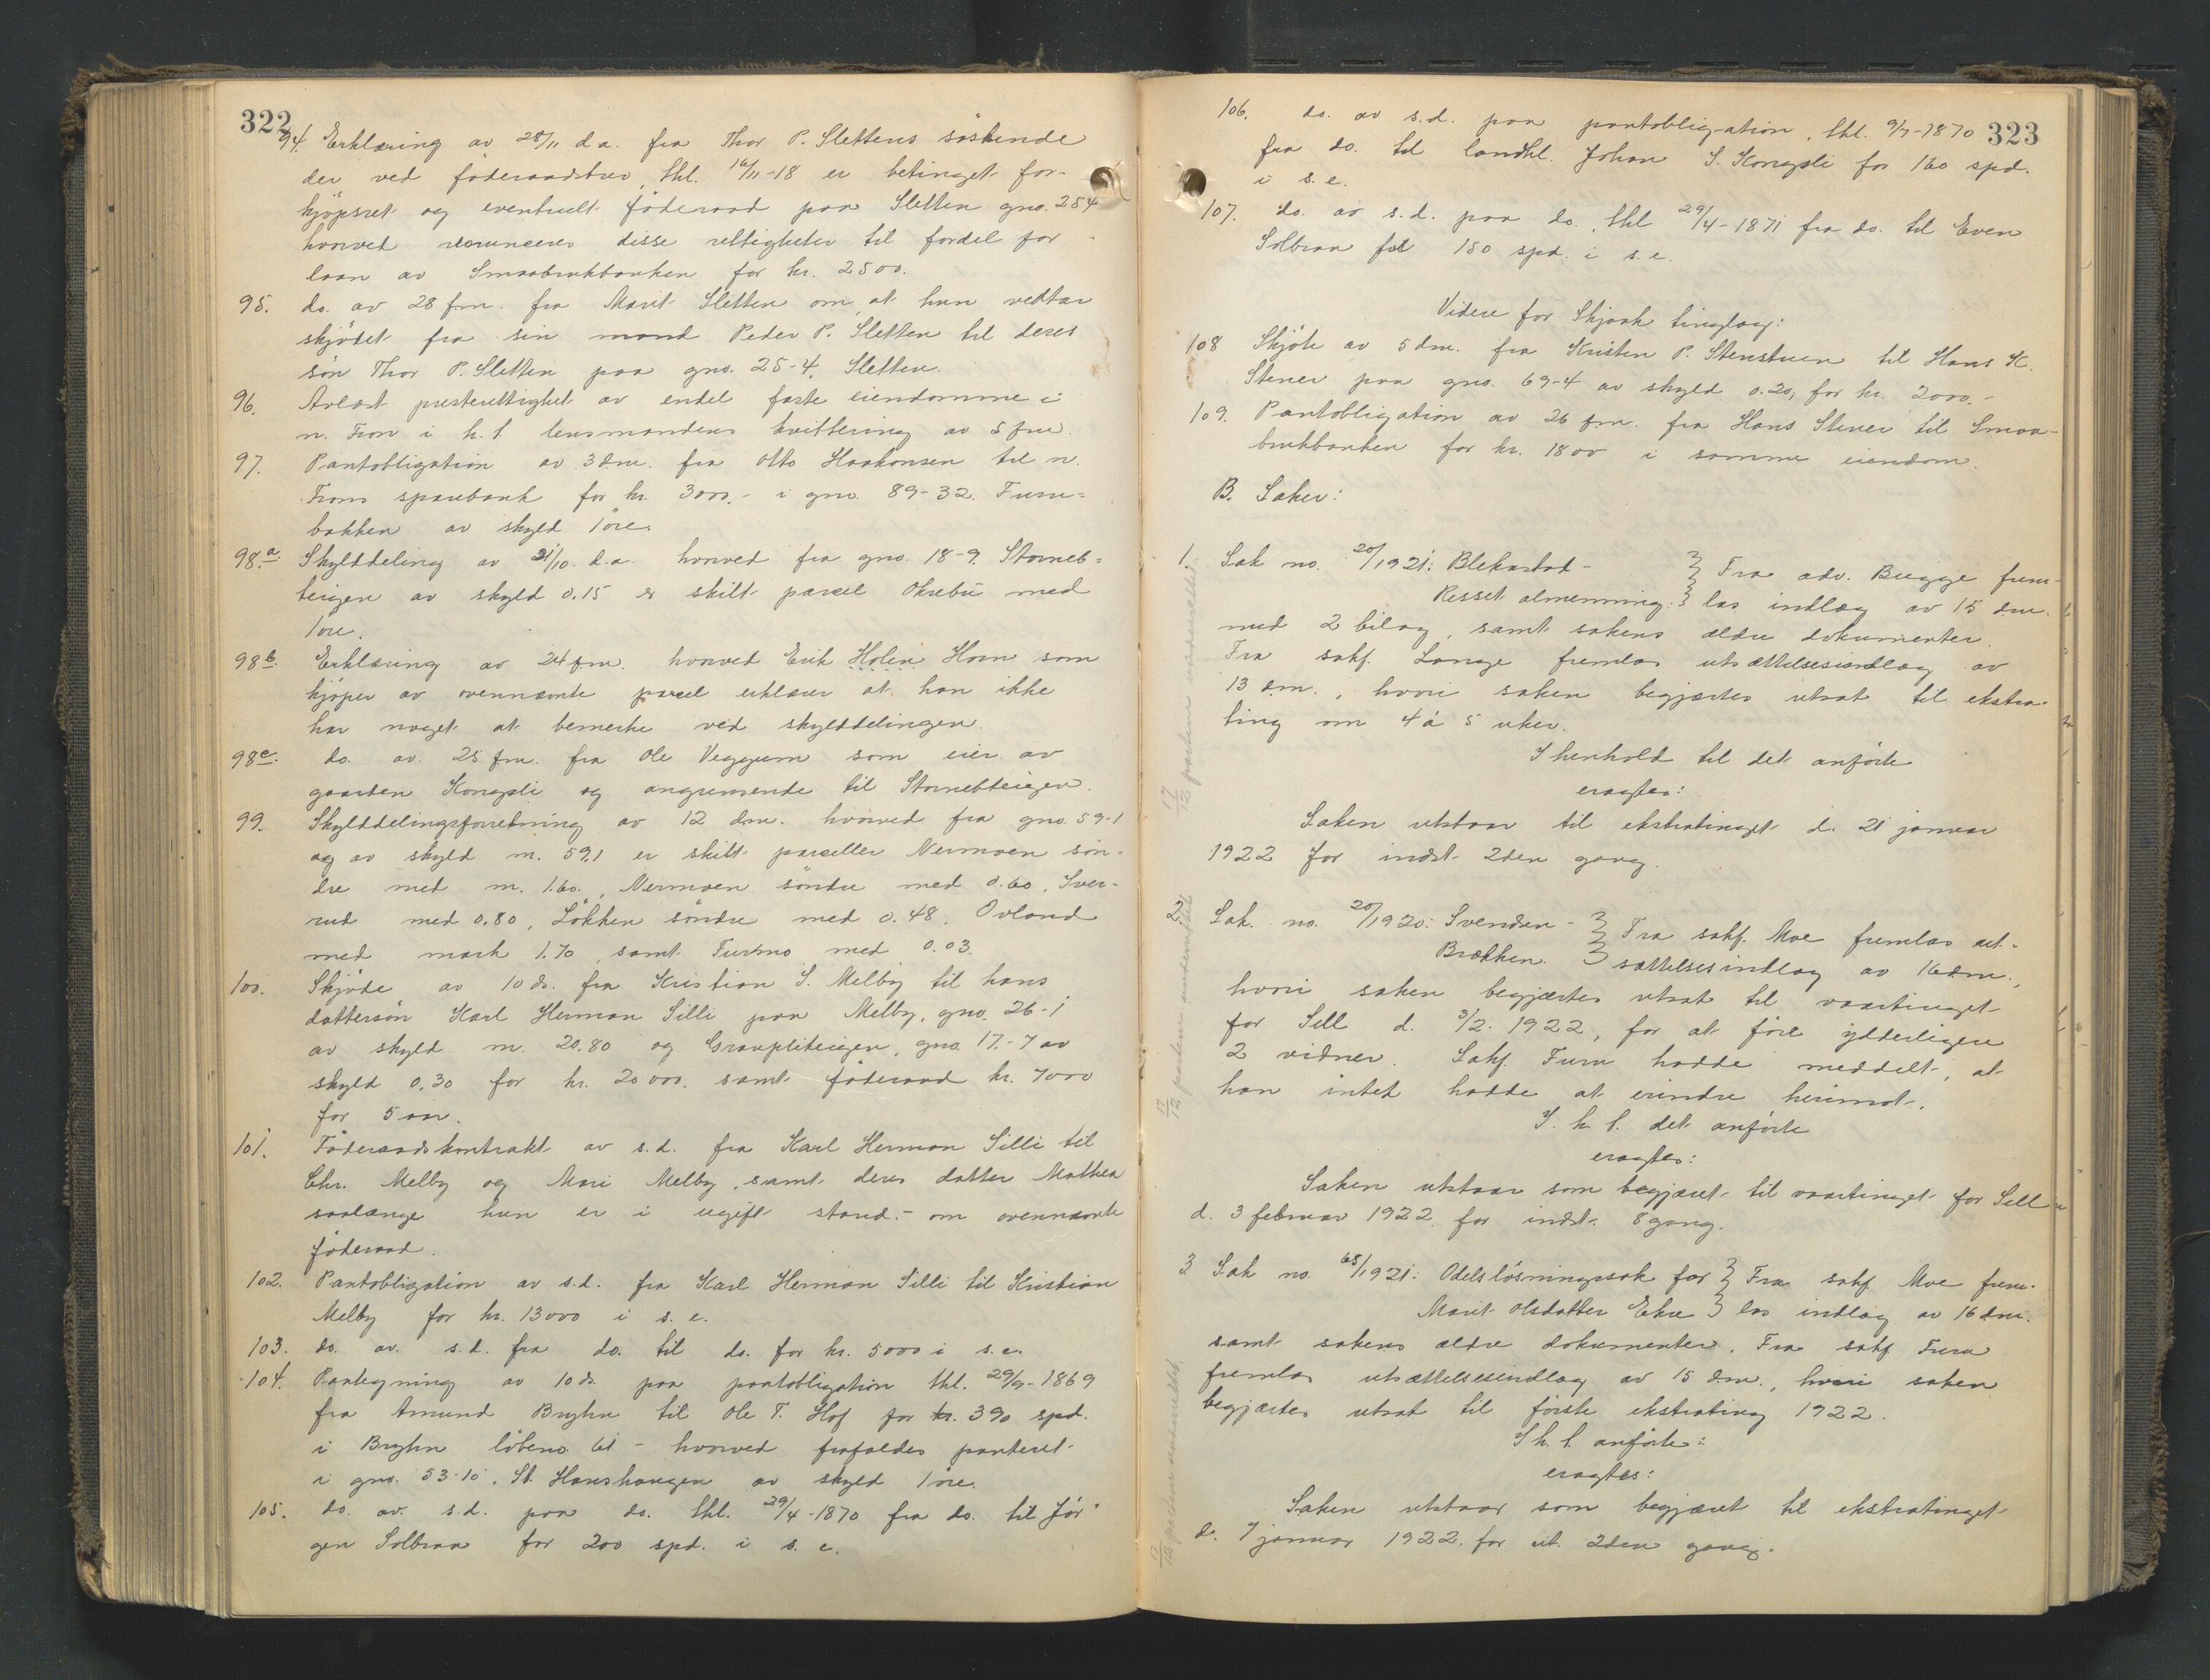 322
94. Erklæring av 28/11 d.a. fra Thor P. Slettens søskende
der ved föderaadsbrev, thl. 16/11-18 er betinget for-
kjøpsret og eventuelt föderaad paa Sletten gno. 25-4
hvorved renunceres disse rettigheter til fordel for
laan av Smaabrukbanken for kr. 2500.
95. do. av 28 fm. fra Marit Sletten om, at hun vedtar
skjödet fra sin mand Peder P. Sletten til deres
sön Thor P. Sletten paa gno. 25-4, Sletten.
96. Avlöst presterettighet av endel faste eiendomme i
n. Fron i h.t. lensmandens kvittering av 5 fm.
97. Pantobligation av 3 dm. fra Otto Haakonsen til n.
Frons sparebank for kr. 3000.- i gno. 89-32. Furu=
bakken av skyld 1 öre.
98.a Skylddeling av 21/10. d.a. hvorved fra gno. 18-9. Storneb=
teigen av skyld 0.15 er skilt parcel Økrebu med
1 öre.
98 b. Erklæring av 24 fm. hvorved Erik Holen Horn som
kjøper av ovennævnte parcel erklærer at han ikke
har noget at bemerke ved skylddelingen.
98 c. do. av 25 fm. fra Ole Veggum som eier av
gaarden Kongsli og angrensende til Stornebteigen.
99. Skylddelingsforretning av 12 dm. hvorved fra gno. 59-1
og av skyld m. 59,1 er skilt parceller Nermoen sön-
dre med m. 1.60., Nermoen söndre med 0.60, Sver-
rud med 0.80, Løkken söndre med 0.48. Ovland
med mark 1.70, samt Furumo med 0.03.
100. Skjöde av 10 ds. fra Kristian S. Melby til hans
dattersön Karl Herman Silli paa Melby, gno. 26-1
av skyld m. 20.80 og Graupliteigen, gno. 17-7 av
skyld 0,30 for kr. 20000. samt föderaad kr. 7000
for 5 aar.
101. Föderaadskontrakt av s.d. fra Karl Herman Silli til
Chr. Melby og Mari Melby, samt deres datter Mathea
saalænge hun er i ugift stand.- om ovennævnte
föderaad.
102. Pantobligation av s.d. fra Karl Herman Silli til Kristian
Melby for kr. 13000 i s.e.
103. do. av. s.d. fra do. til do. for kr. 5000 i s.e.
104. Paategning av 10 ds. paa pantobligation thl. 29/9-1869
fra Amund Bryhn til Ole T. Hof for kr. 390 spd.
i Bryhn löbeno. 61 - hvorved frafaldes panteret
i gno. 53-10. St. Hanshaugen av skyld 1 öre.
105. do. av. s.d. paa do. thl. 29/4-1870 fra do. til Jör-
gen Solbraa for 200 spd. i s.e.
323
106. do. av s.d. paa pantobligation, thl. 9/7-1870
fra do. til landhl. Johan S. Kongsli for 160 spd.
i s.e.
107. do. av s.d. paa do., thl 29/4-1871 fra do. til Even
Solbraa for 150 spd. i s.e.
Videre for Skjaak tinglag:
108 Skjöte av 5 dm. fra Kristen P. Stenstuen til Hans K.
Stener paa gno. 69-4 av skyld 0.20, for kr. 2000.-
109. Pantobligation av 26 fm. fra Hans Stener til Smaa-
brukbanken for kr. 1800 i samme eiendom.
B. Saker:
1. Sak no. 20/1921: Blekastad - } Fra adv. Bugge frem-
Resset almenning. } las indlæg av 15 dm.
med 2 bilag, samt sakens ældre dokumenter.
Fra sakf. Lange fremlas utsættelsesindlæg av
13 dm., hvori saken begjærtes utsat til ekstra-
ting om 4 à 5 uker.
I henhold til det anførte
eragtes:
Saken utstaar til ekstratinget d. 21 januar
1922 for indst. 2den gang.
2. Sak. no. 20/1920: Svendsen - } Fra sakf. Moe fremlas ut-
Brækken. } sættelsesindlæg av 16 dm.,
hvori saken begjærtes utsat til vaartinget
for Sell d. 3/2. 1922, for at føre ydderligere
2 vidner. Sakf. Furu hadde meddelt, at
han intet hadde at erindre herimot.
I. h. t. det anførte
eragtes:
Saken utstaar som begjæret til vaartinget for Sell
d. 3 februar 1922 for indst. 8 gang.
3 Sak no. 65/1921: Odelsløsningssak for } Fra sakf. Moe frem-
Marit Olsdatter Ekre } las indlæg av 16 dm.
samt sakens ældre dokumenter. Fra sakf. Furu
fremlas utsættelsesindlæg av 15 dm., hvori saken
begjærtes utsat til første ekstrating 1922.
I h. t. anførte:
eragtes:
Saken utstaar som begjæret til ekstratinget
d. 7 januar 1922, for ut. 2den gang.
17/12 partene underrettet.
17/12 partene underrettet
17/12 partene underrettet.